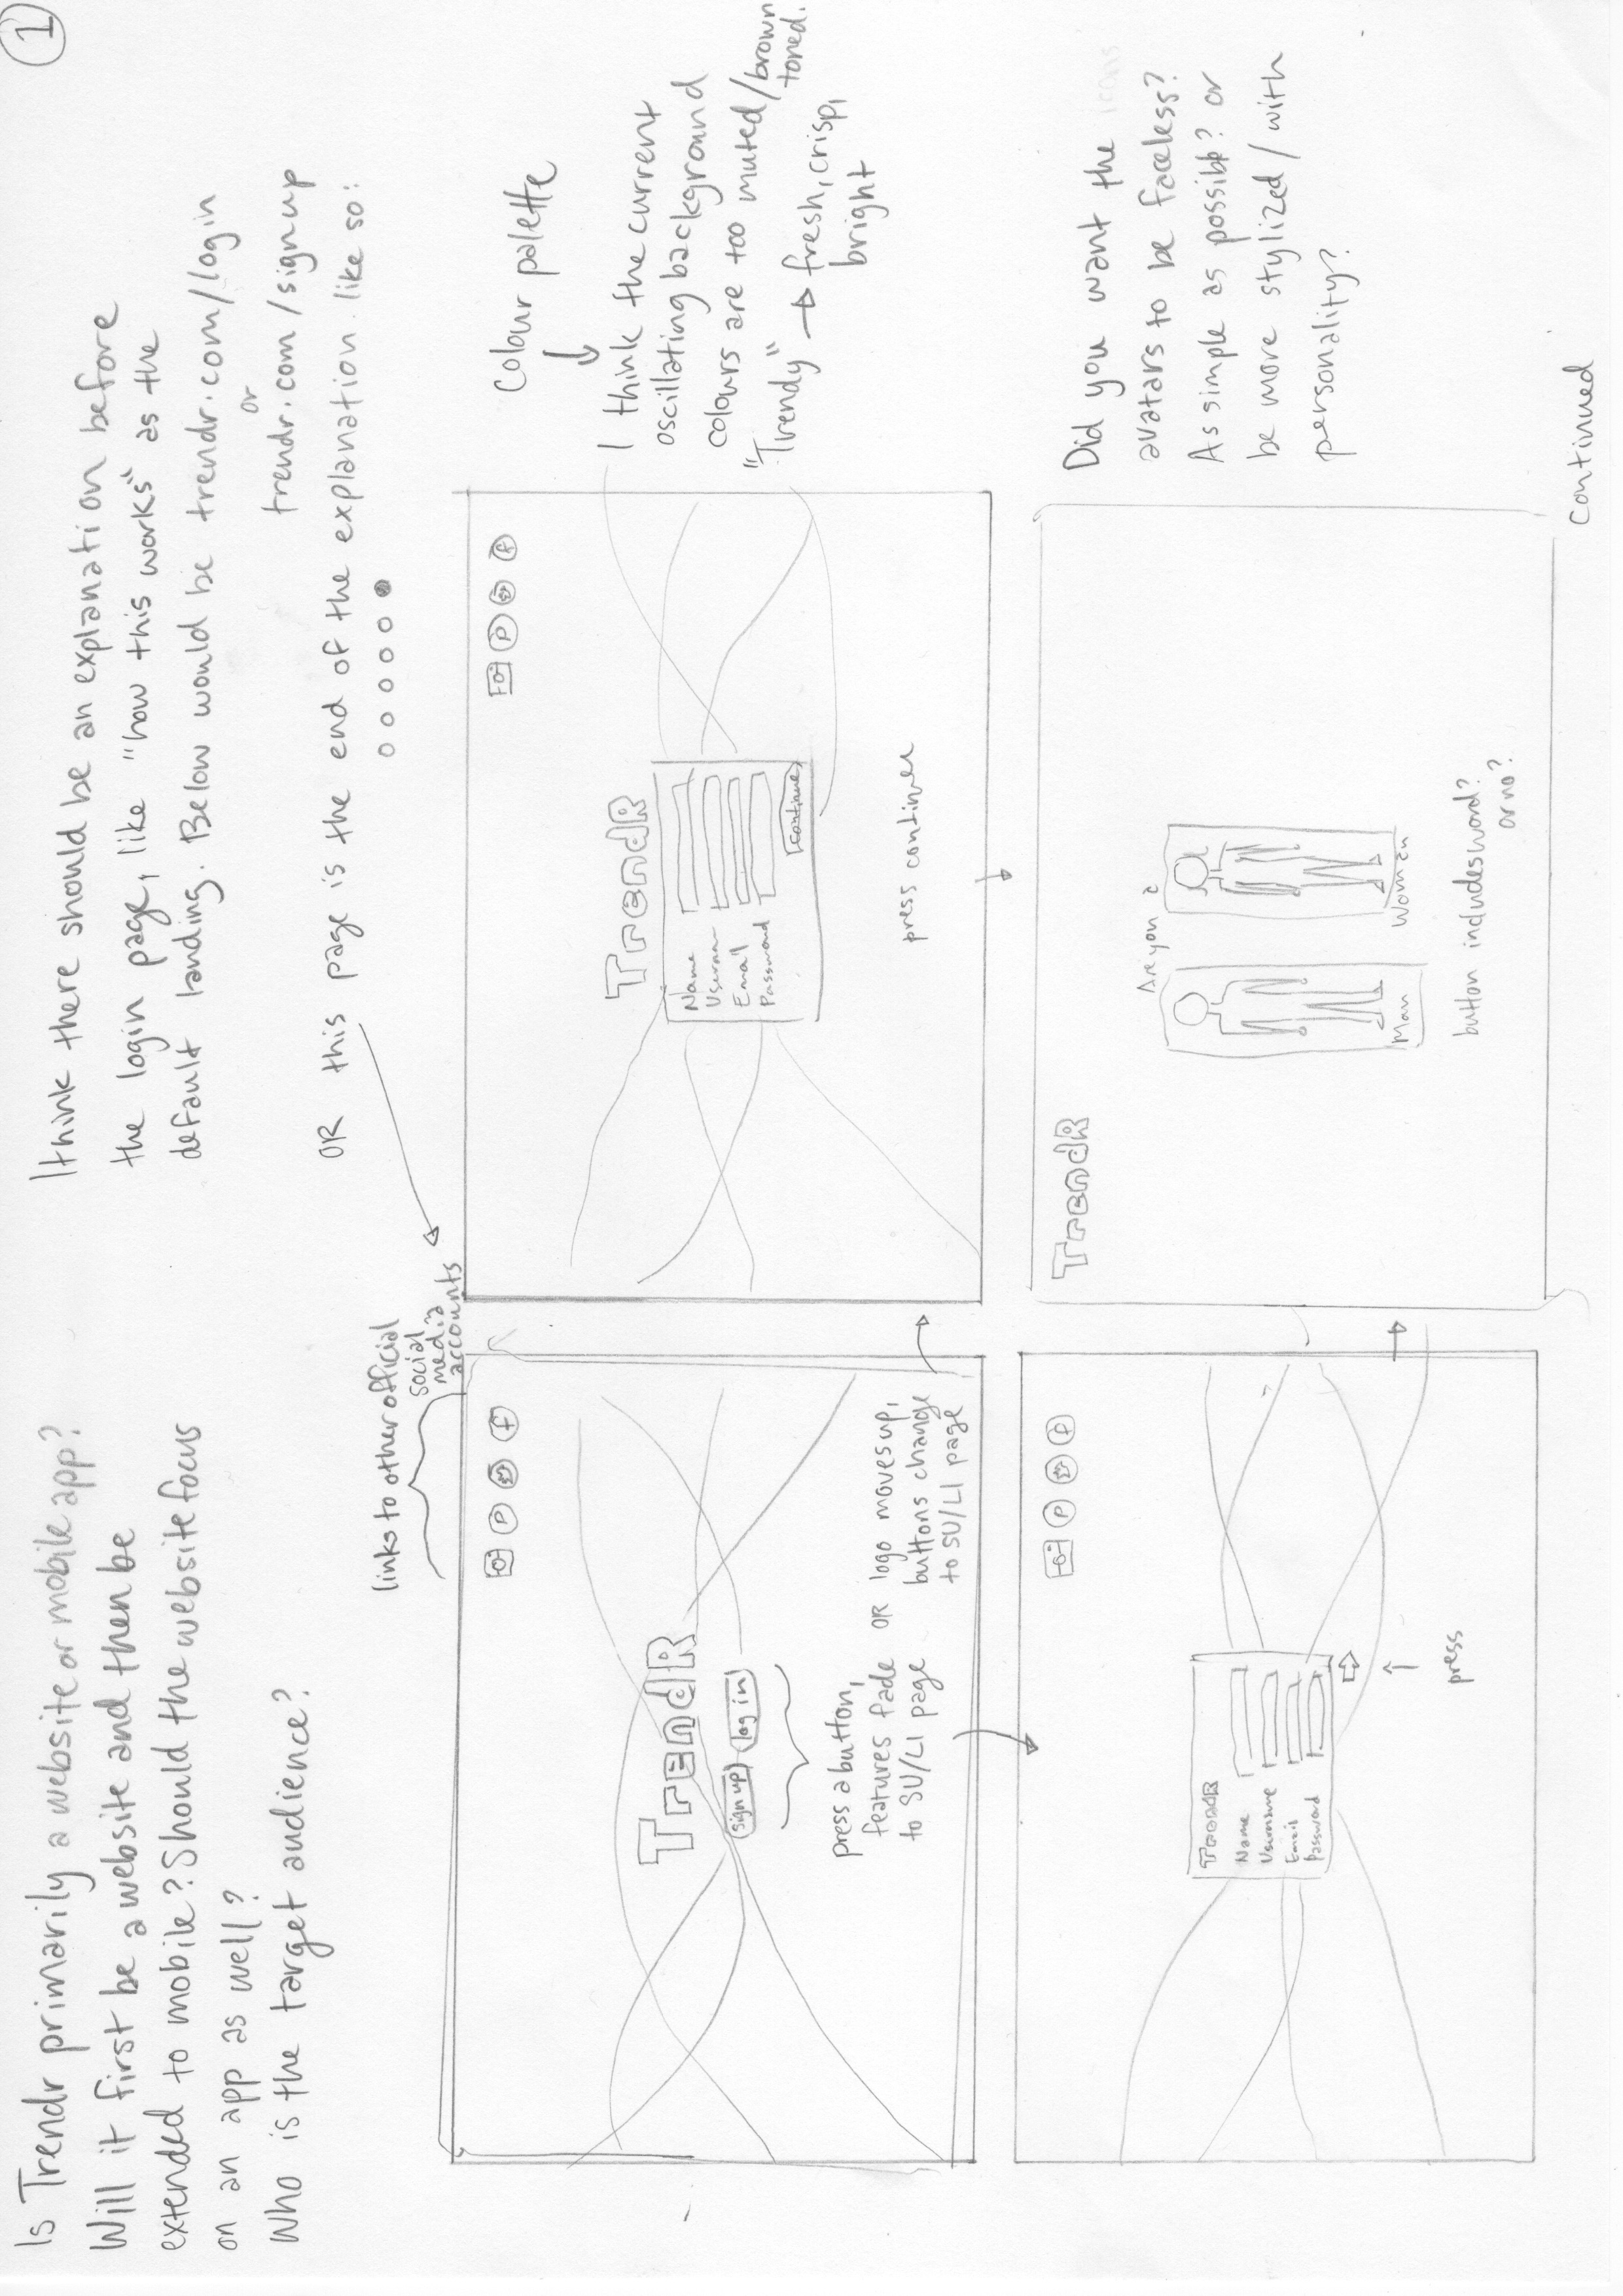 1
Is Trendr primarily a website or mobile app?
Will it first be a website and then be
extended to mobile? Should the website focus
on an app as well?
Who is the target audience?
I think there should be an explanation before
the login page, like "how this works" as the
default landing. Below would be trendr.com/login
or
trendr.com/signup
OR this page is the end of the explanation. like so:
links to other official
social
media
accounts
TrendR
sign up log in
press a button,
features fade OR logo moves up,
to SU/LI page buttons change
to SU/LI page
TrendR
Name
Usernam
Email
Password
Continue
press continue
Colour palette
I think the current
oscillating background
colours are too muted/brown
toned.
"Trendy" → fresh, crisp,
bright
TrendR
Name
Username
Email
Password
press
TrendR
Are you a
Man Woman
button includes word?
or no?
Did you want the icons
avatars to be faceless?
As simple as possible? or
be more stylized/with
personality?
continued